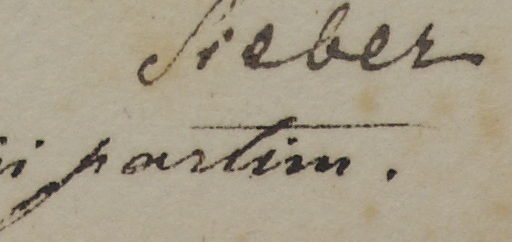 Sieber
ii partim.